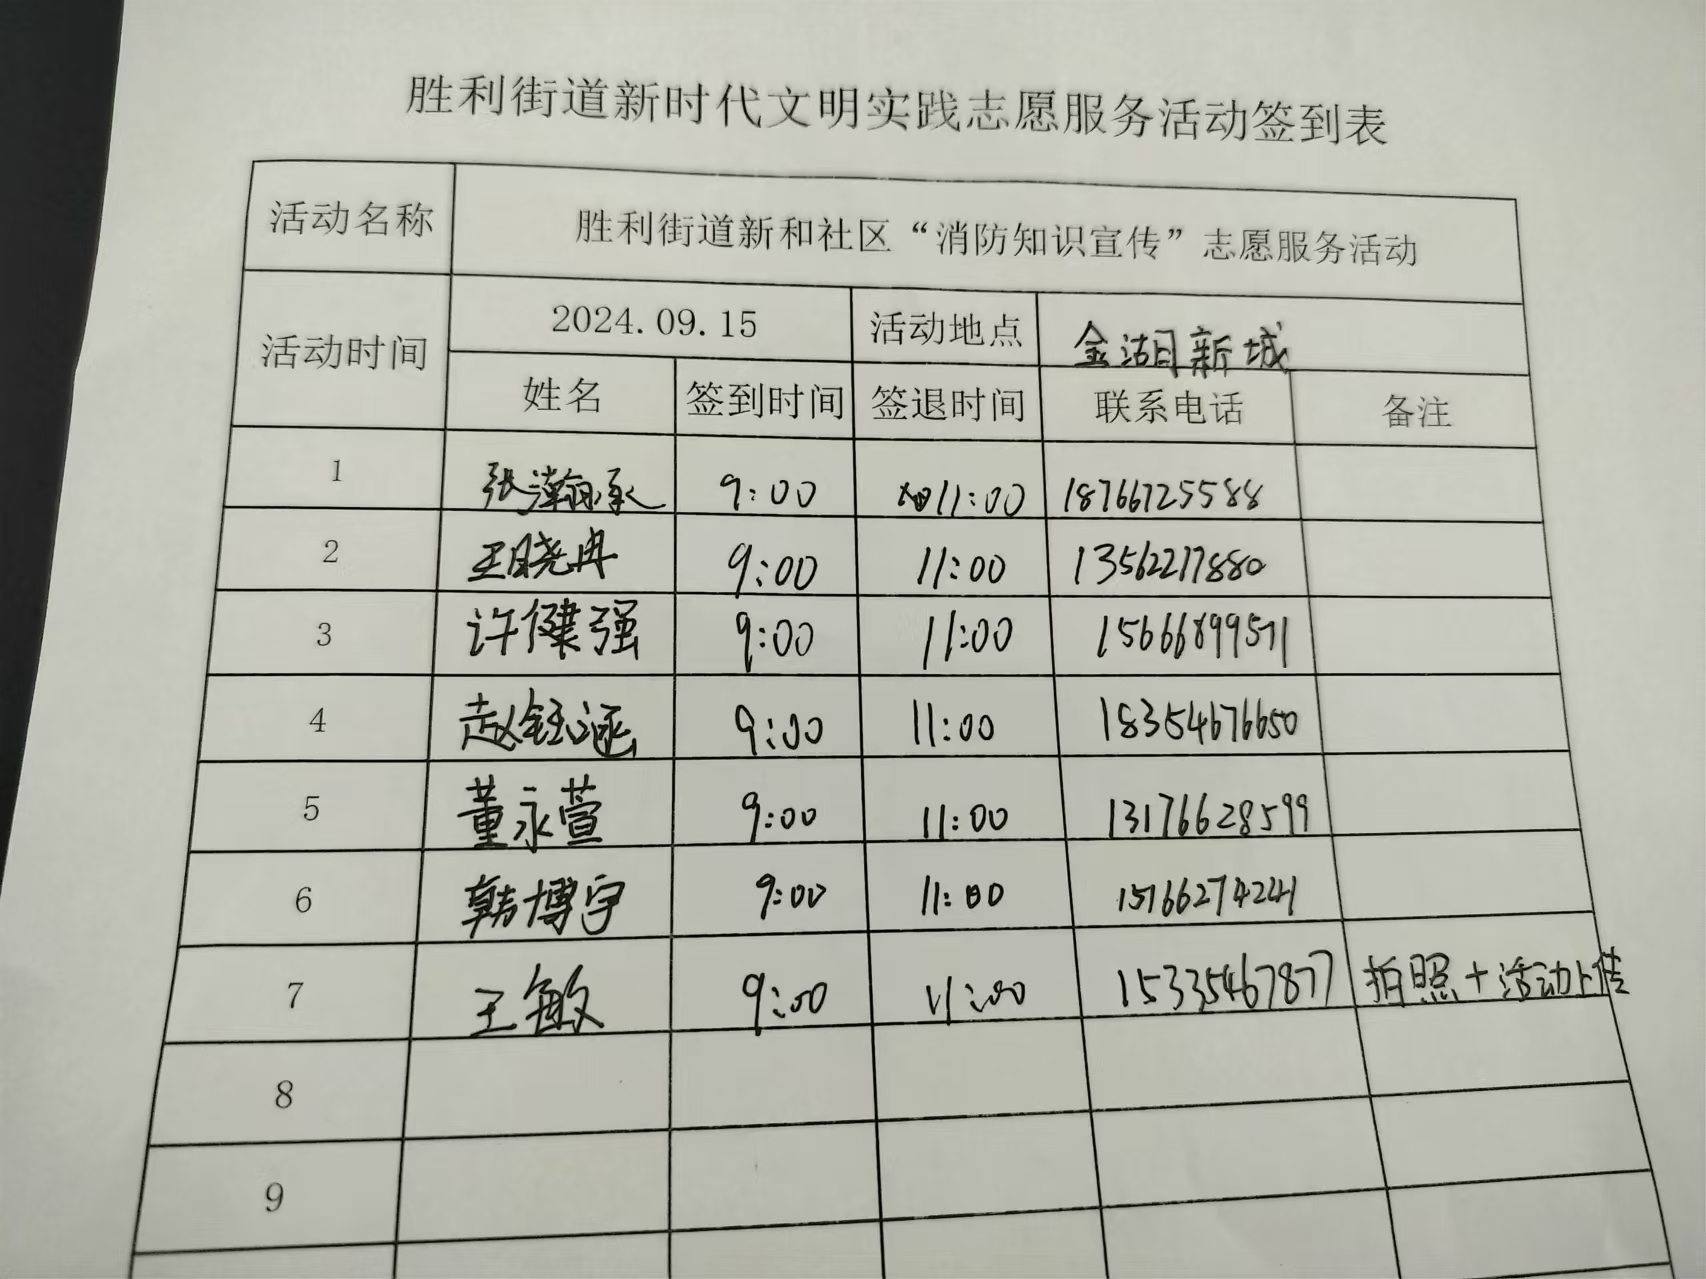 胜利街道新时代文明实践志愿服务活动签到表
活动名称 胜利街道新和社区“消防知识宣传”志愿服务活动
活动时间 2024.09.15 活动地点 金湖新城
姓名 签到时间 签退时间 联系电话 备注
1 张瀚承 9:00 11:00 18766725588
2 王晓冉 9:00 11:00 13562277880
3 许健强 9:00 11:00 15666899571
4 赵钰涵 9:00 11:00 18354676650
5 董永萱 9:00 11:00 13176628599
6 韩博宇 9:00 11:00 15766274241
7 王敏 9:00 11:00 15335467877 拍照+活动上传
8
9